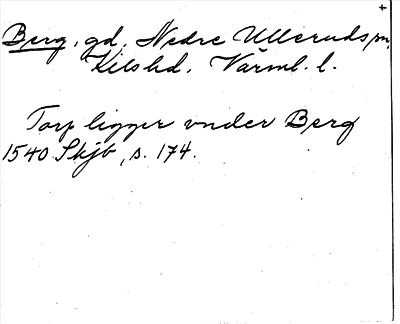 Berg, gd, Nedre Ulleruds sn,
Kils hd. Värml. l.
Torp ligger vnder Berg
1540 Skjb, s. 174.